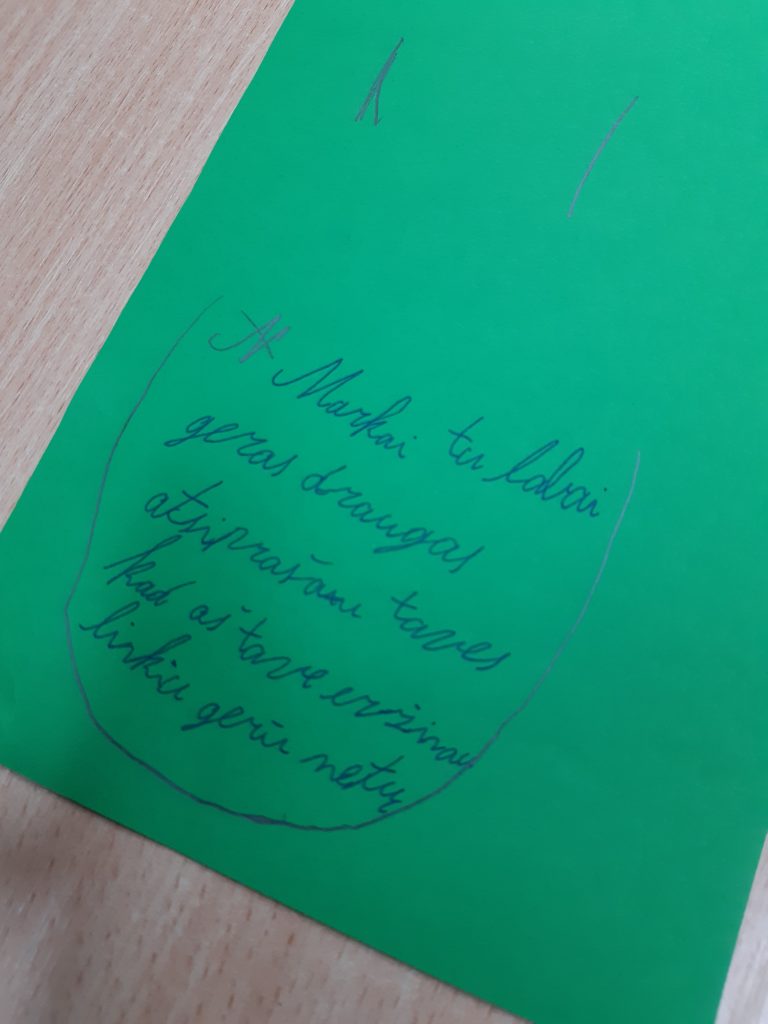 Markai tu labai
geras draugas
atsiprašau taves
kad aš tave eržinau
linkiu gerų metų